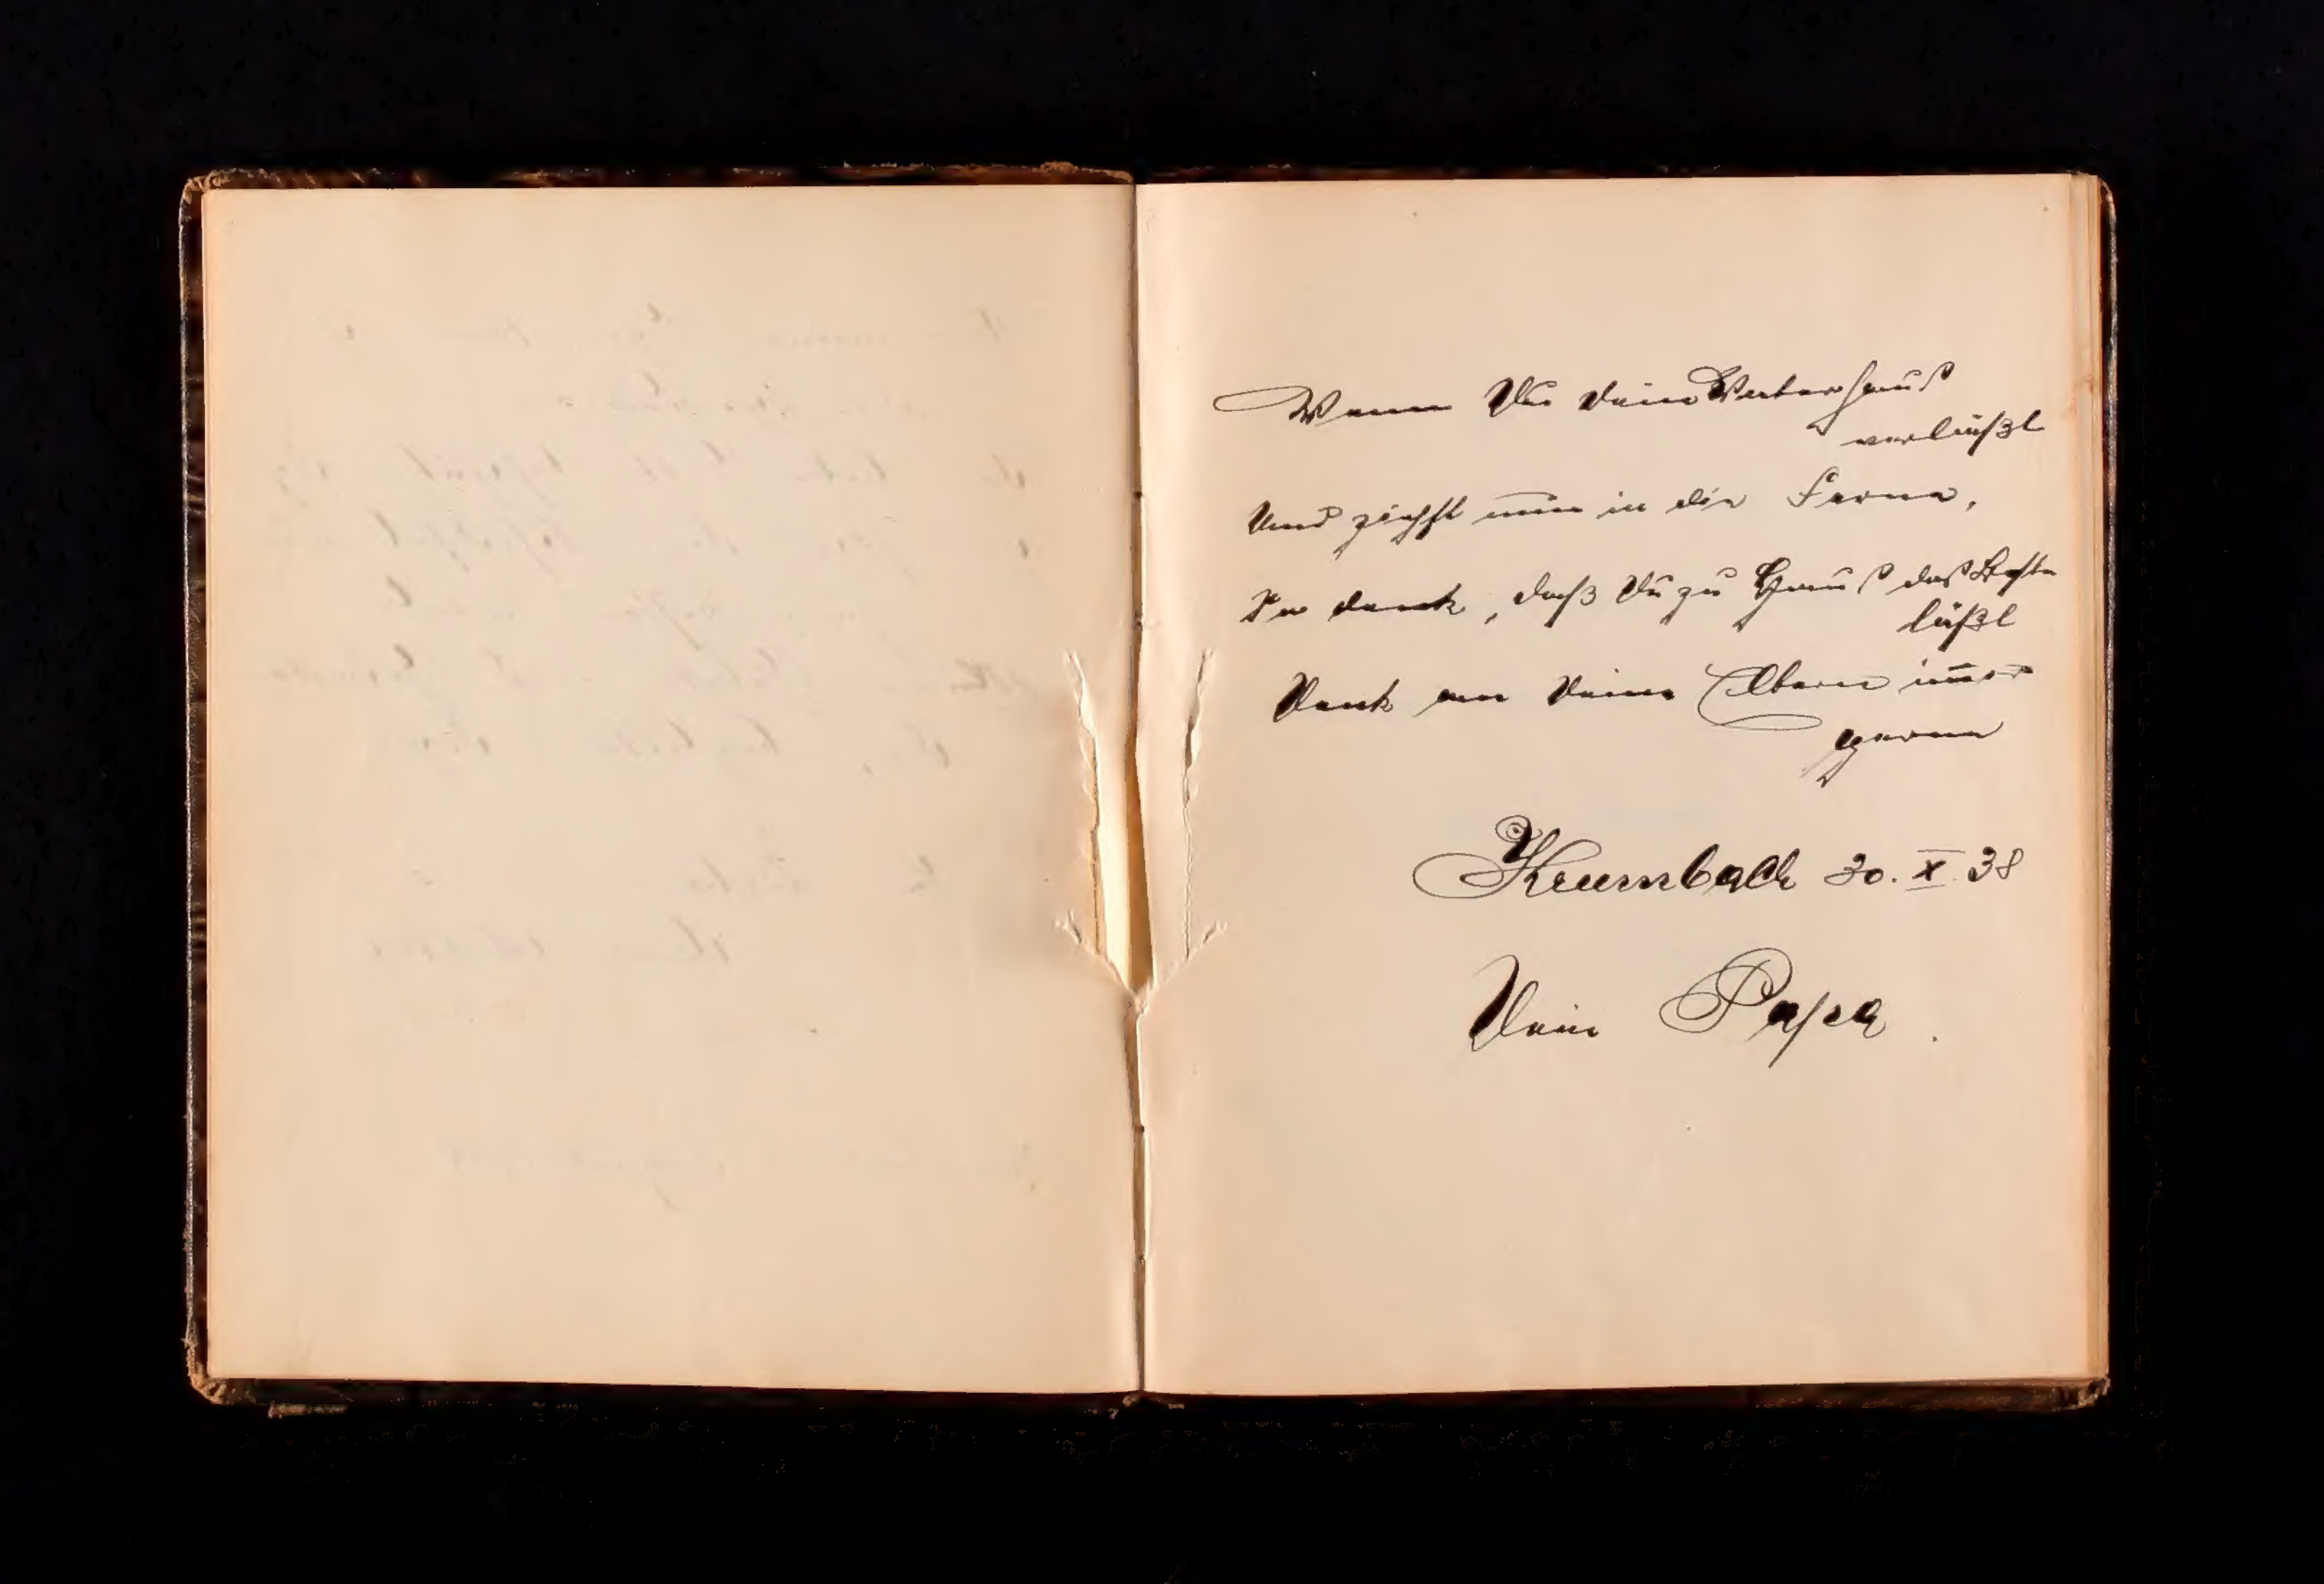 Wenn Du dein Vaterhaus
verläßt
Und ziehst nun in die Ferne,
So denk, daß Du zu Haus das Beste
läßt
Denk an Deine Eltern im̅er
gerne
Krumbach 30. X. 38
Dein Papa.